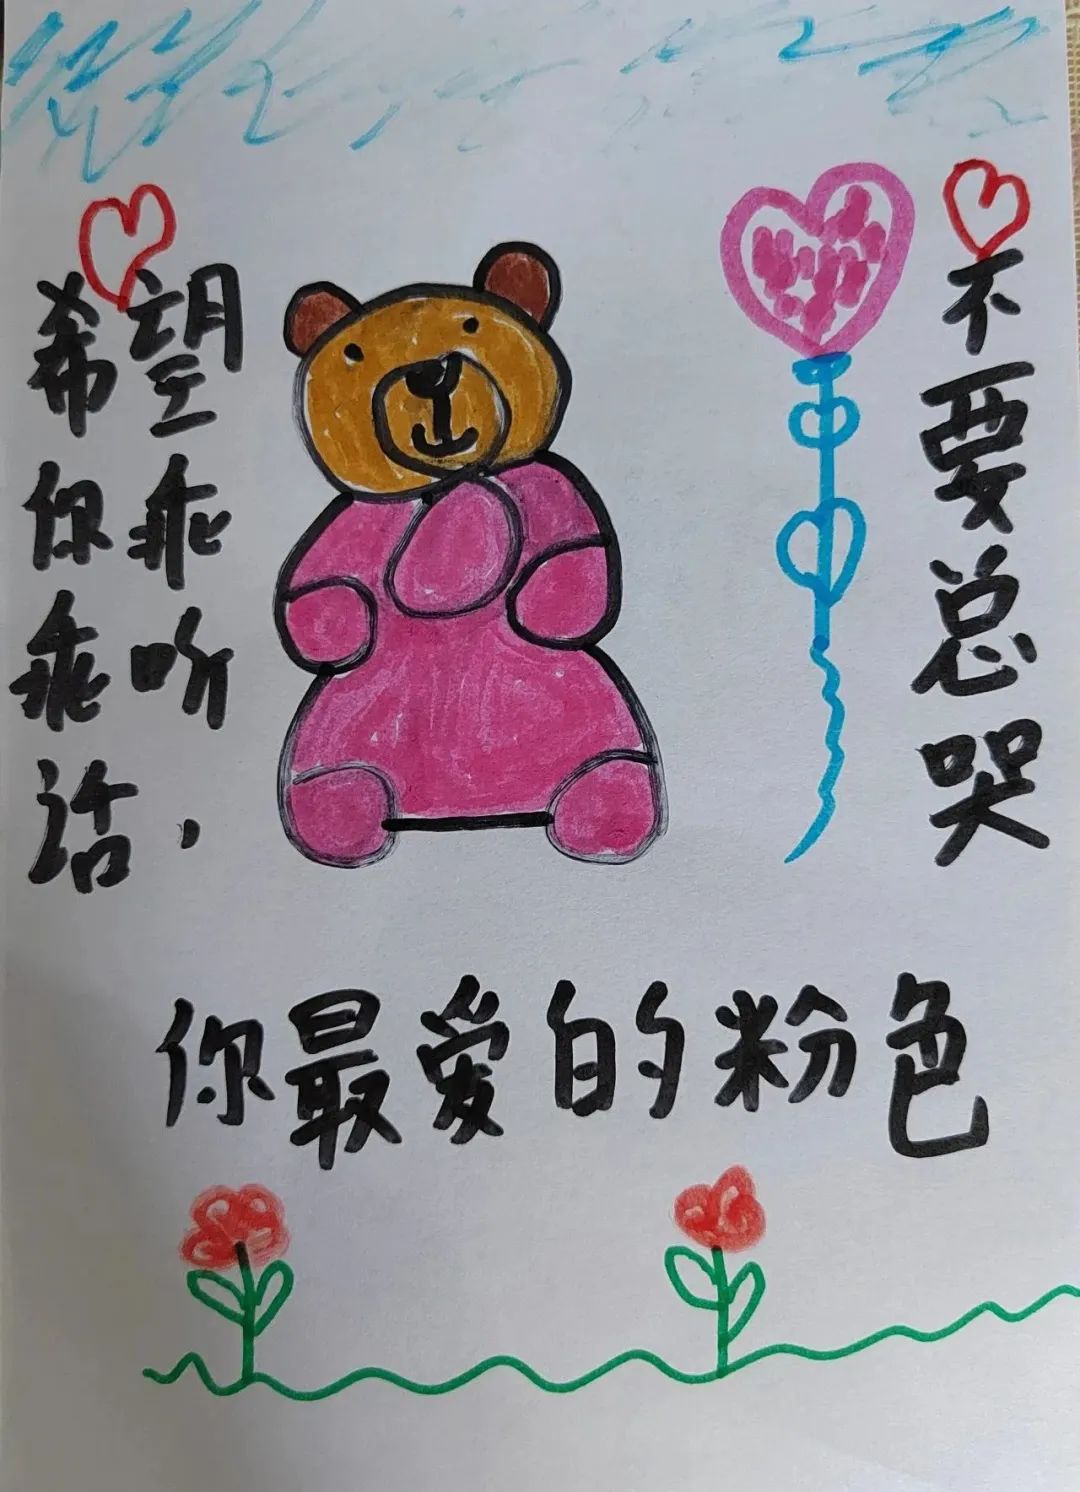 希望
你乖
乖听
话，
不要总哭
你最爱的粉色